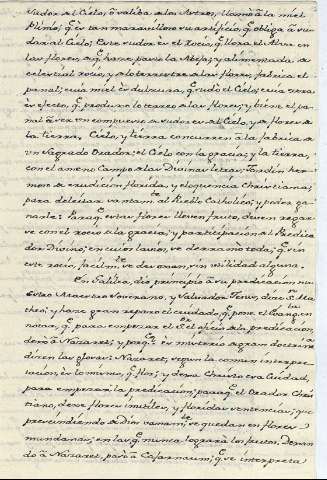 sudor del Cielo, ò saliba de los Astros, llamò à la miel
Plinio; qᵉ es tan maravilloso su artificio, qᵉ obliga à su-
dar al Cielo; Este sudor es el Rocio, qᵉ llora el Alva en
las flores, en qᵉ hace pasto la Abeja; y alimentada de
celestial rocio, y de lo terrestre de las flores, fabrica el
panal; cuia miel es dulzura, qᵉ sudò el Cielo; cuia cera
es efecto, qᵉ produxo lo terreo de las flores; y viene el pa-
nal à ser un compuesto de sudores del Cielo, y de flores de
la tierra. Cielo, y tierra concurren à la fabrica de
un Sagrado Orador; el Cielo con la gracia; y la tierra,
con el ameno Campo de las Divinas letras; Jardin her-
moso de erudicion florida, y eloquencia Christiana;
para deleitar santamᵗᵉ al Real Catholico, y poder ga-
narle: Para qᵉ estas flores lleven fruto, deven regar-
se con el rocio de la gracia; y participacion del Predica-
dor Divino; en cuios lavios, se derramò toda; qᵉ sin
este rocio, facilmᵗᵉ se desvanen, sin utilidad alguna.
En Galilea, diò principio à su predicacion nu-
estro Maestro Soverano, y Salvador Jesus, dice S. Ma-
theo; y hace gran reparo el cuidado, qᵉ pone el Evangᵗᵃ en
notar, qᵉ para empezar el Sʳ el oficio de la predicacion,
dexò à Nazaret; y porqᵉ es misterio de gran doctrina
dicen las glosas: Nazaret, segun la comun interpre-
tacion, es lo mismo, qᵉ flor; y dexa Christo esa Ciudad,
para empezar la predicacion; para qᵉ el Orador Chris-
tiano, dexe flores inutiles, y floridas sentencias, que
prescindiendo de Dios vanamᵗᵉ, se quedan en flores
mundanas; en las qᵉ nunca lograrà los frutos. Dexan-
do à Nazaret, pasò à Cafarnaum; qᵉ se interpreta